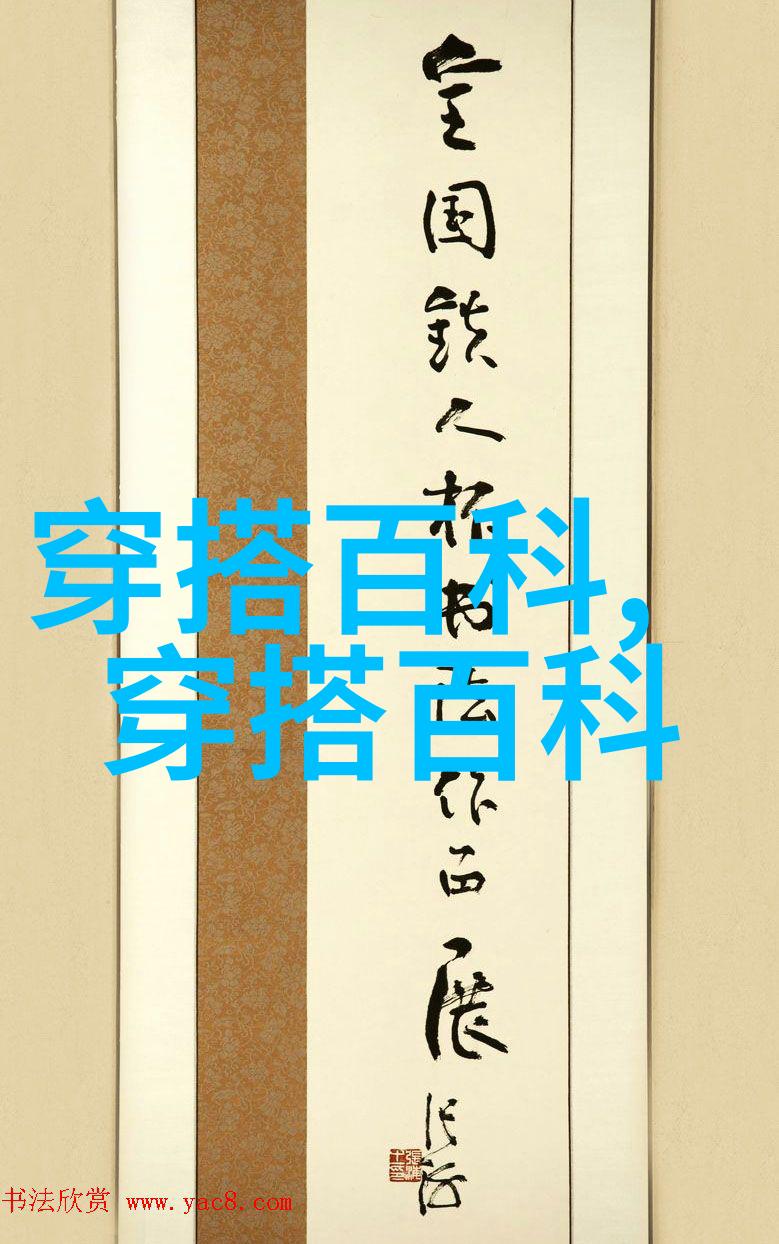 全国铁人杯书法作品展
张海
穿搭百科,
穿搭百科
书法欣赏 www.yac8.com